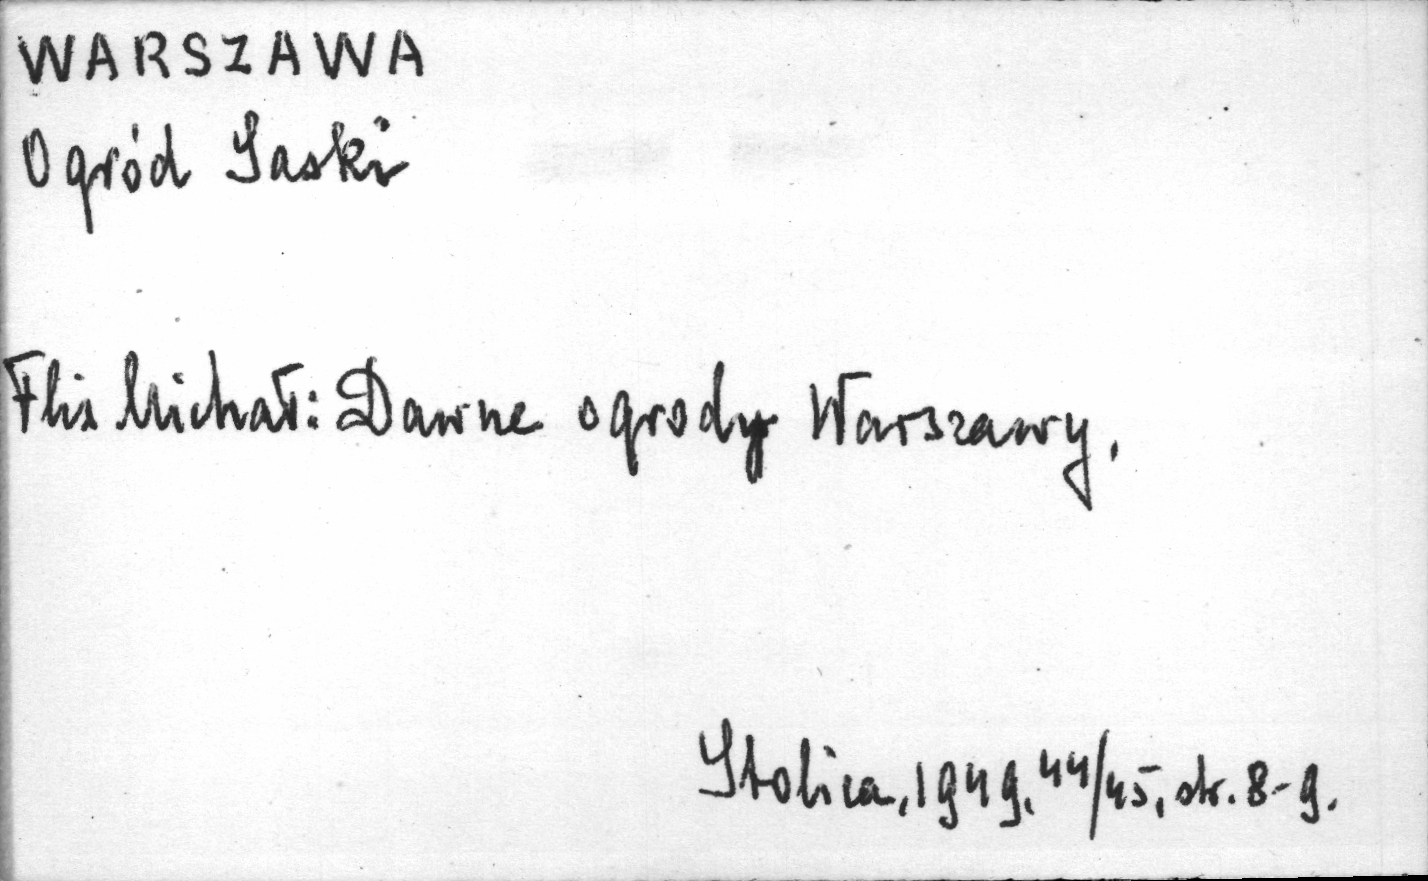 WARSZAWA
Ogród Saski
Flis Michał: Dawne ogrody Warszawy,
Stolica, 1949, 44/45, str. 8-9.